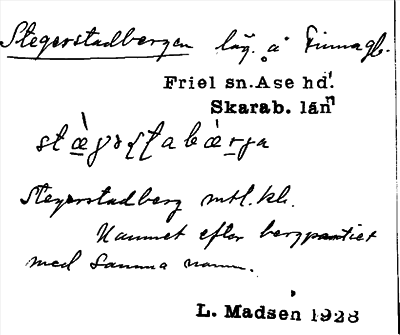 Stegerstadbergen läg. å Finnagb.
Friel sn. Ase hd.
Skarab. län
stæ̀gəʂʈabæ̀rga
Stegerstadberg mtl. kb.
Namnet efter bergpartiet
med samma namn.
L. Madsen 1928